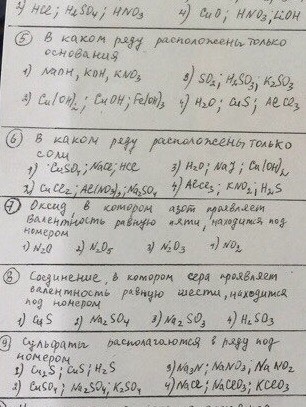 3) HCl; H₂SO₄; HNO₃ 4) CuO; HNO₃; LiOH
5 В каком ряду расположены только
основания
1) NaOH, KOH, KNO₃ 3) SO₂; H₂SO₃; K₂SO₃
2) Cu(OH)₂; CuOH; Fe(OH)₃ 4) H₂O; CuS; AlCl₃
6 В каком ряду расположены только
соли
1) CuSO₄; NaCl; HCl 3) H₂O; NaJ; Ca(OH)₂
2) CuCl₂; Al(NO₃)₃; Na₂SO₄ 4) AlCl₃; KNO₂; H₂S
7 Оксид, в котором азот проявляет
валентность равную пяти, находится под
номером
1) N₂O 2) N₂O₅ 3) N₂O₃ 4) NO₂
8 Соединение, в котором сера проявляет
валентность равную шести, находится
под номером
1) CuS 2) Na₂SO₄ 3) Na₂SO₃ 4) H₂SO₃
9 Сульфаты располагаются в ряду под
номером
1) Cu₂S; CuS; H₂S 3) Na₃N; NaNO₃; NaNO₂
2) CuSO₄; Na₂SO₄; K₂SO₄ 4) NaCl; NaClO₃; KClO₃